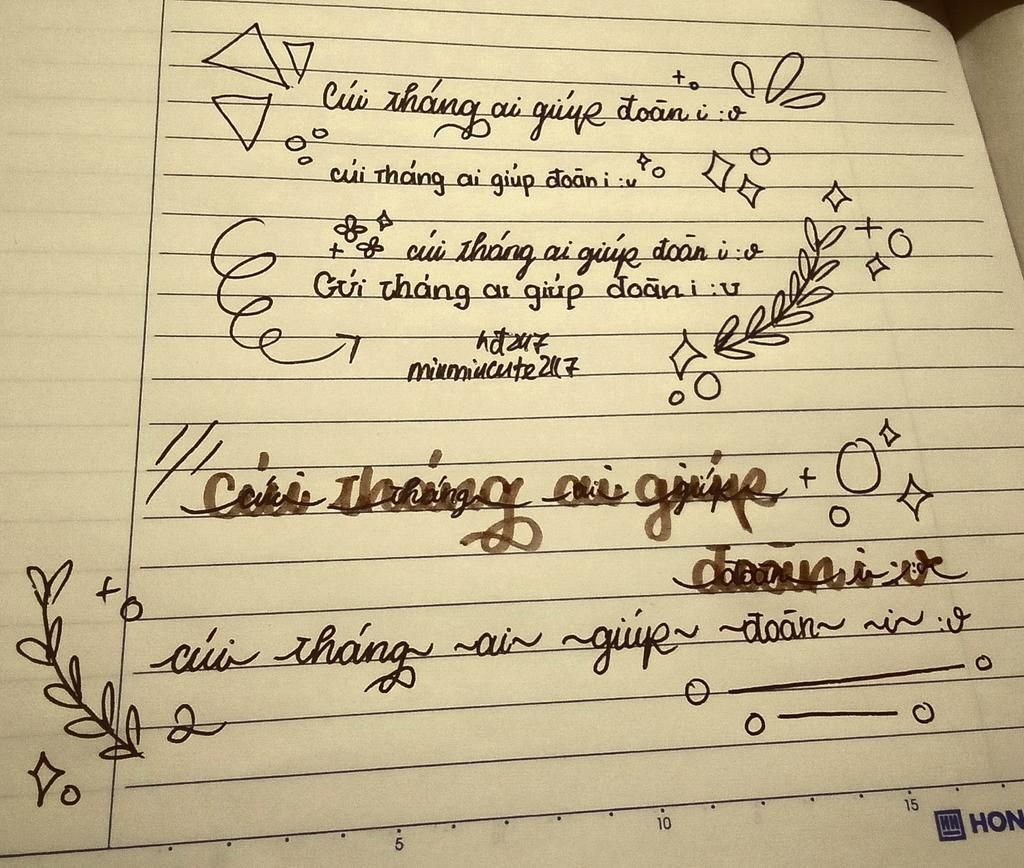 cúi tháng ai giúp đoān i :v
cúi tháng ai giúp đoān i :v
cúi tháng ai giúp đoān i :v
Cúi tháng ai giúp đoān i :v
hđ247
minmincute247
cúi tháng ai giúp
đoān i :v
cúi tháng ~ai~ ~giúp~ ~đoān~ ~i~ :v
2
5 10 15
HON